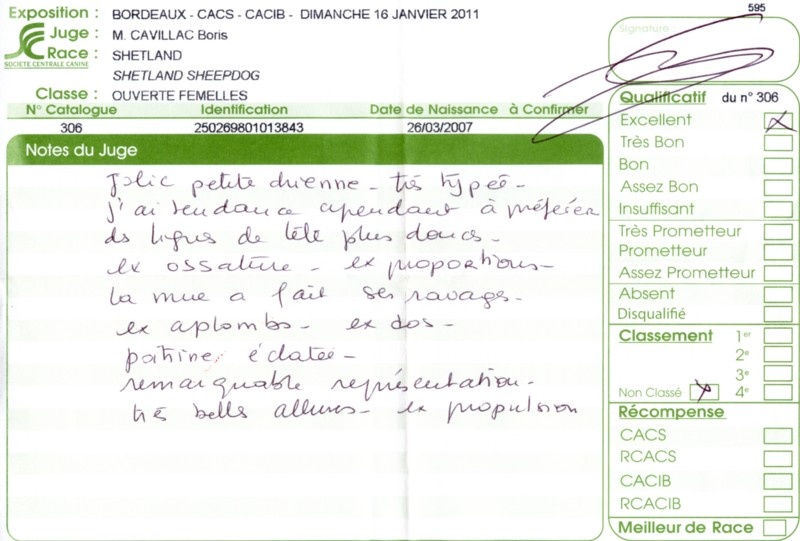 595
Exposition : BORDEAUX - CACS - CACIB - DIMANCHE 16 JANVIER 2011
Juge : M. CAVILLAC Boris
Race : SHETLAND
SOCIETE CENTRALE CANINE
SHETLAND SHEEPDOG
Classe : OUVERTE FEMELLES
N° Catalogue Identification Date de Naissance à Confirmer
306 250269801013843 26/03/2007
Notes du Juge
Jolie petite chienne - très typée -
j'ai tendance cependant à préférer
des lignes de tête plus douces -
ex ossature - ex proportions -
la mue a fait ses ravages -
ex aplombs - ex dos -
poitrine éclatée -
remarquable représentation -
très belles allures - ex propulsion
Signature
Qualificatif du n° 306
Excellent X
Très Bon
Bon
Assez Bon
Insuffisant
Très Prometteur
Prometteur
Assez Prometteur
Absent
Disqualifié
Classement 1er
2e
3e
Non Classé X 4e
Récompense
CACS
RCACS
CACIB
RCACIB
Meilleur de Race